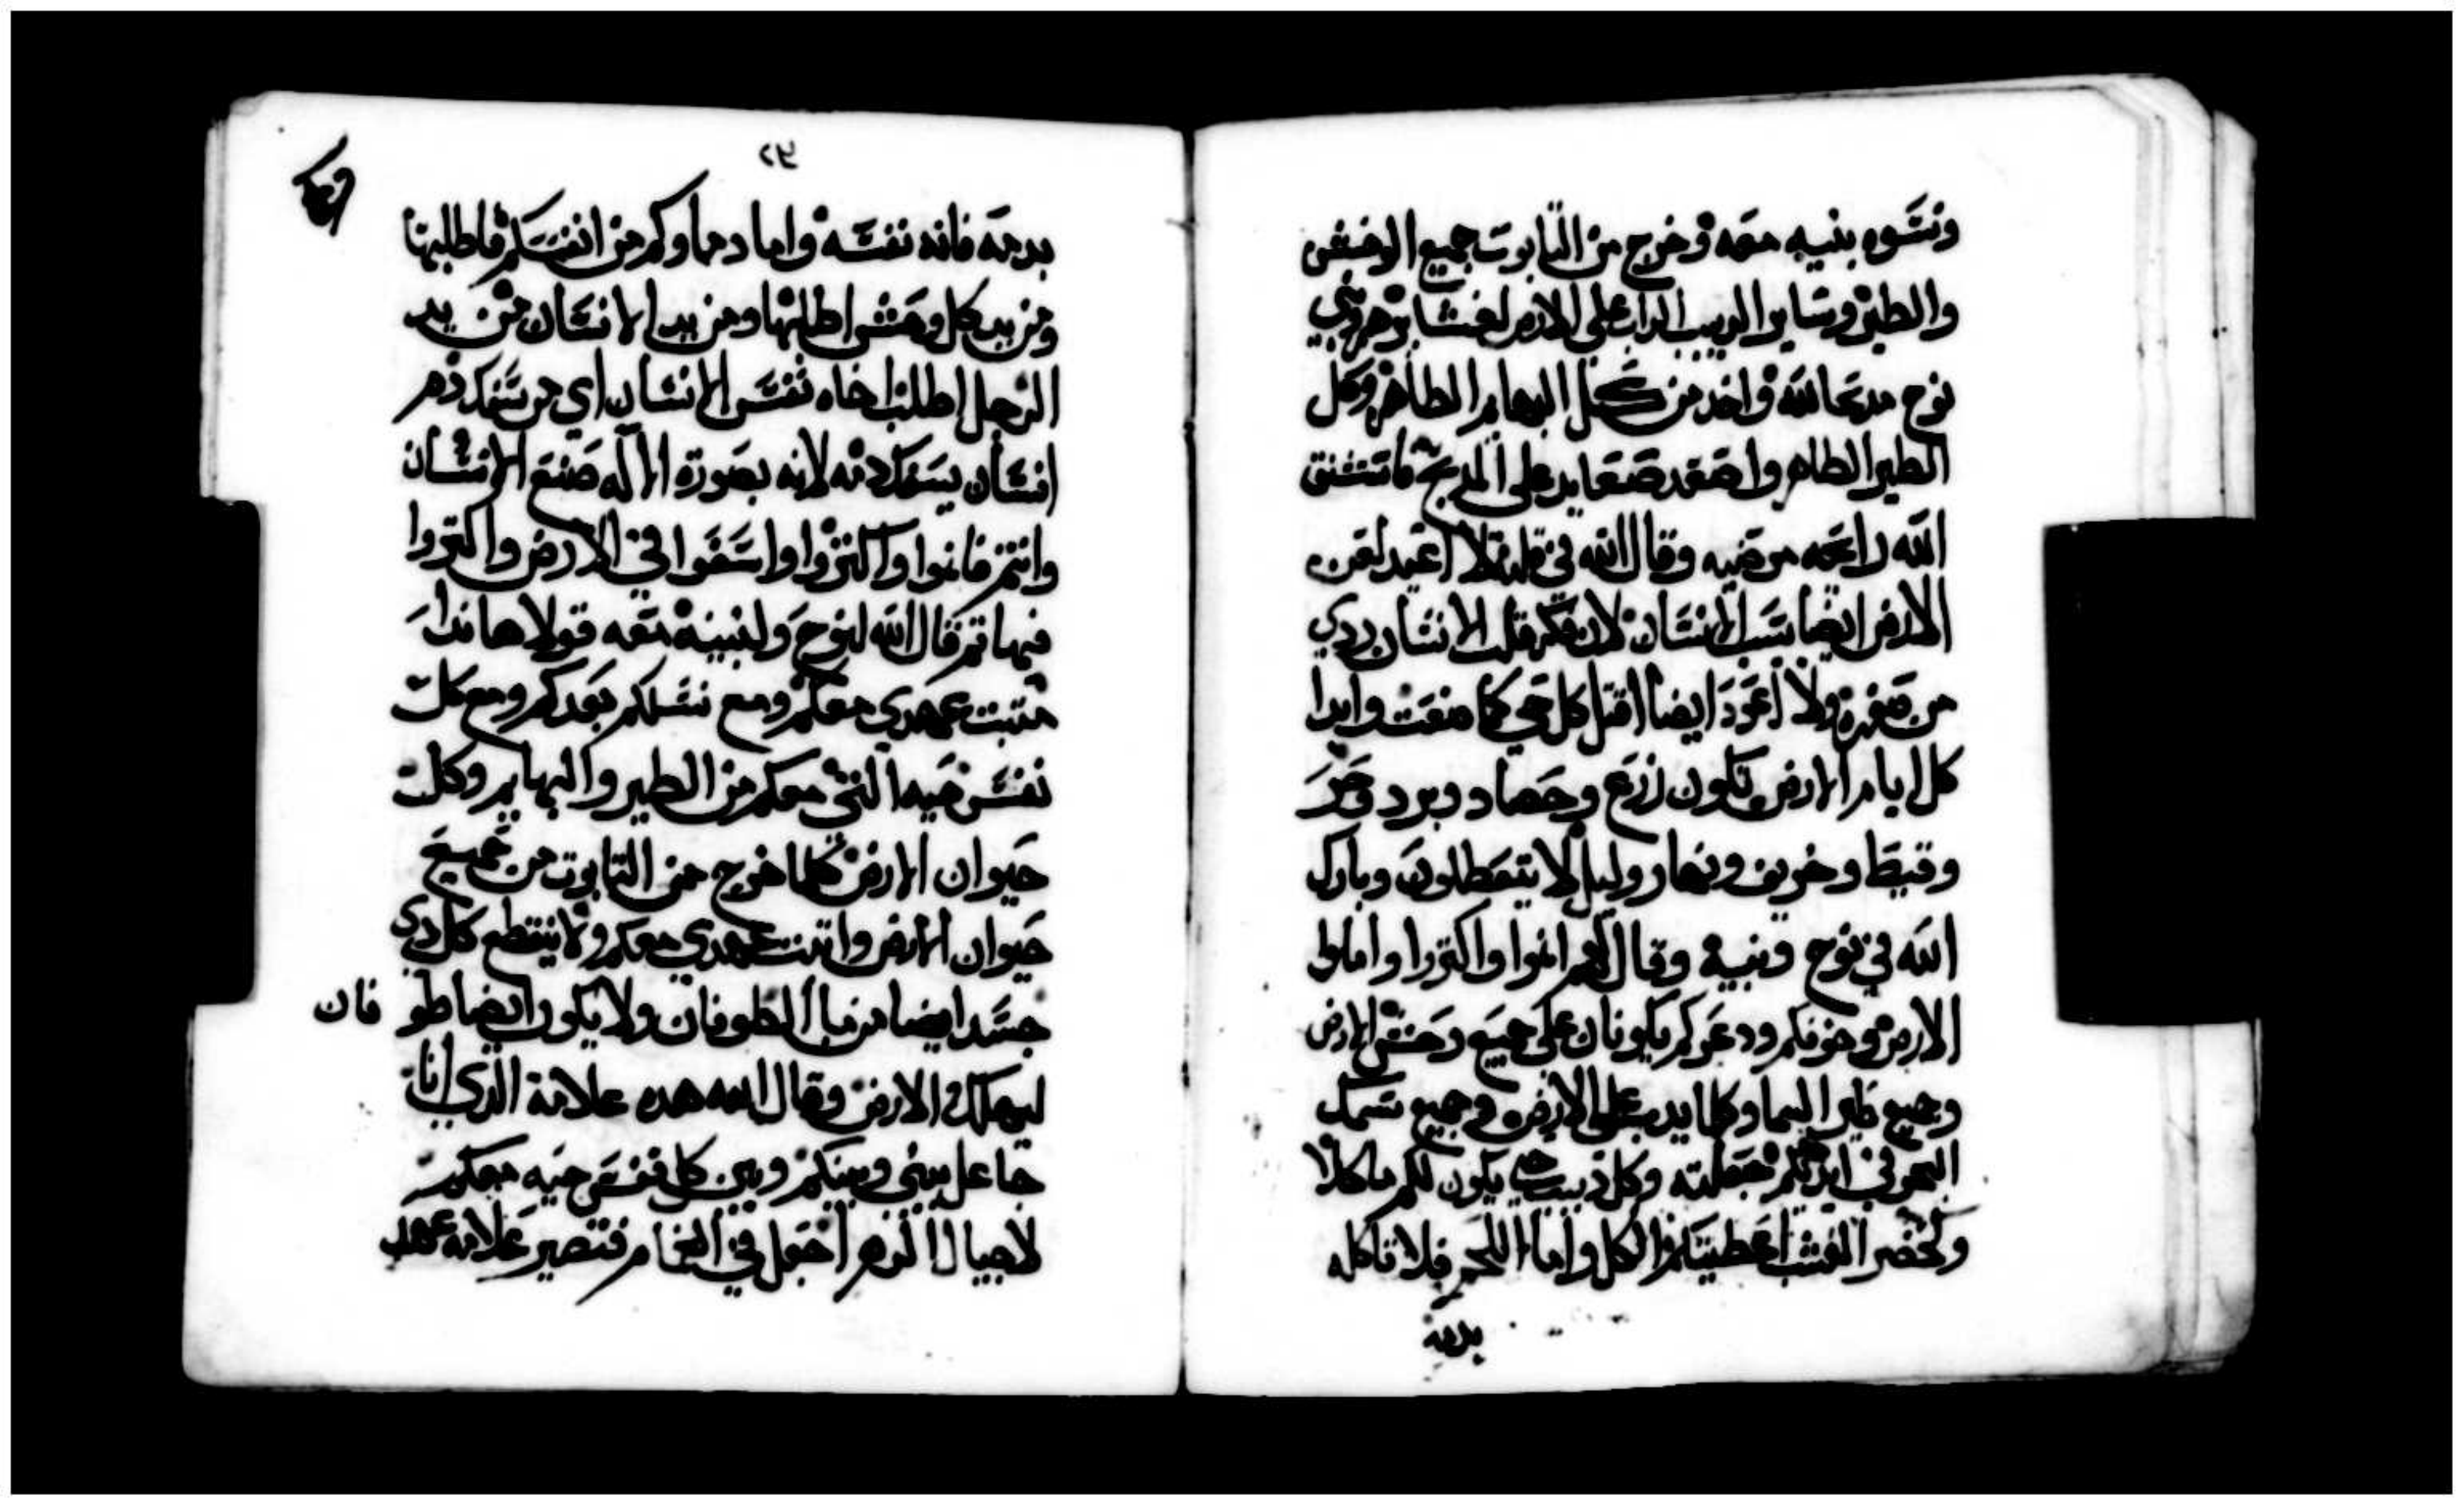 ونسوه بنيه معه وخرج من التابوت جميع الوحش
والطير وساير الدبيب الداب على الارض لعشايرهم وبني
نوح مدبحا لله واخد من كل البهايم الطاهره وكل
الطير الطاهر واصعد صعايد على المدبح فاستنشق
الله رايحه مرضيه وقال الله في قلبه لا اعيد لعن
الارض ايضا بسبب الانسان لان فكر قلب الانسان ردي
من صغره ولا اعود ايضا اقتل كل حي كما صنعت وابدا
كل ايام الارض يكون زرع وحصاد وبرد وحر
وقيظ وخريف ونهار وليل لا يتعطلون وبارك
الله في نوح وبنيه وقال لهم انموا واكتروا واملوا
الارض وخوفكم ودعركم يكونان على جميع وحش الارض
وجميع طير السما وكلما يدب على الارض وجميع سمك
البحر في ايديكم جعلته وكل دبيب حي يكون لكم ماكلا
وكخضر العشب اعطيتكم الكل واما اللحم فلا تاكله
بدمه
٢٩
بدمه فانه نفسه واما دماوكم من انفسكم فاطلبها
ومن يد كل وحش اطلبها ومن يد الانسان من يد
الرجل اطلب اخاه نفس الانسان اي من سفك دم
انسان يسفك دمه لانه بصورة الاله صنع الانسان
وانتم فانموا واكتروا واسعوا في الارض واكتروا
فيها تم قال الله لنوح ولبنيه معه قولا ها اندا
متبت عهدي معكم ومع نسلكم بعدكم ومع كل
نفس حيه التي معكم من الطير والبهايم وكل
حيوان الارض كلما خرج من التابوت من جميع
حيوان الارض واتبت عهدي معكم ولا ينقطع كل دي
جسد ايضا من ما الطوفان ولا يكون ايضا طو فان
ليهلك الارض وقال الله هده علامة الدي انا
جاعل بيني وبينكم وبين كل نفس حيه معكم
لاجيال الدهر اجعل في الغمام فتصير علامه عهد